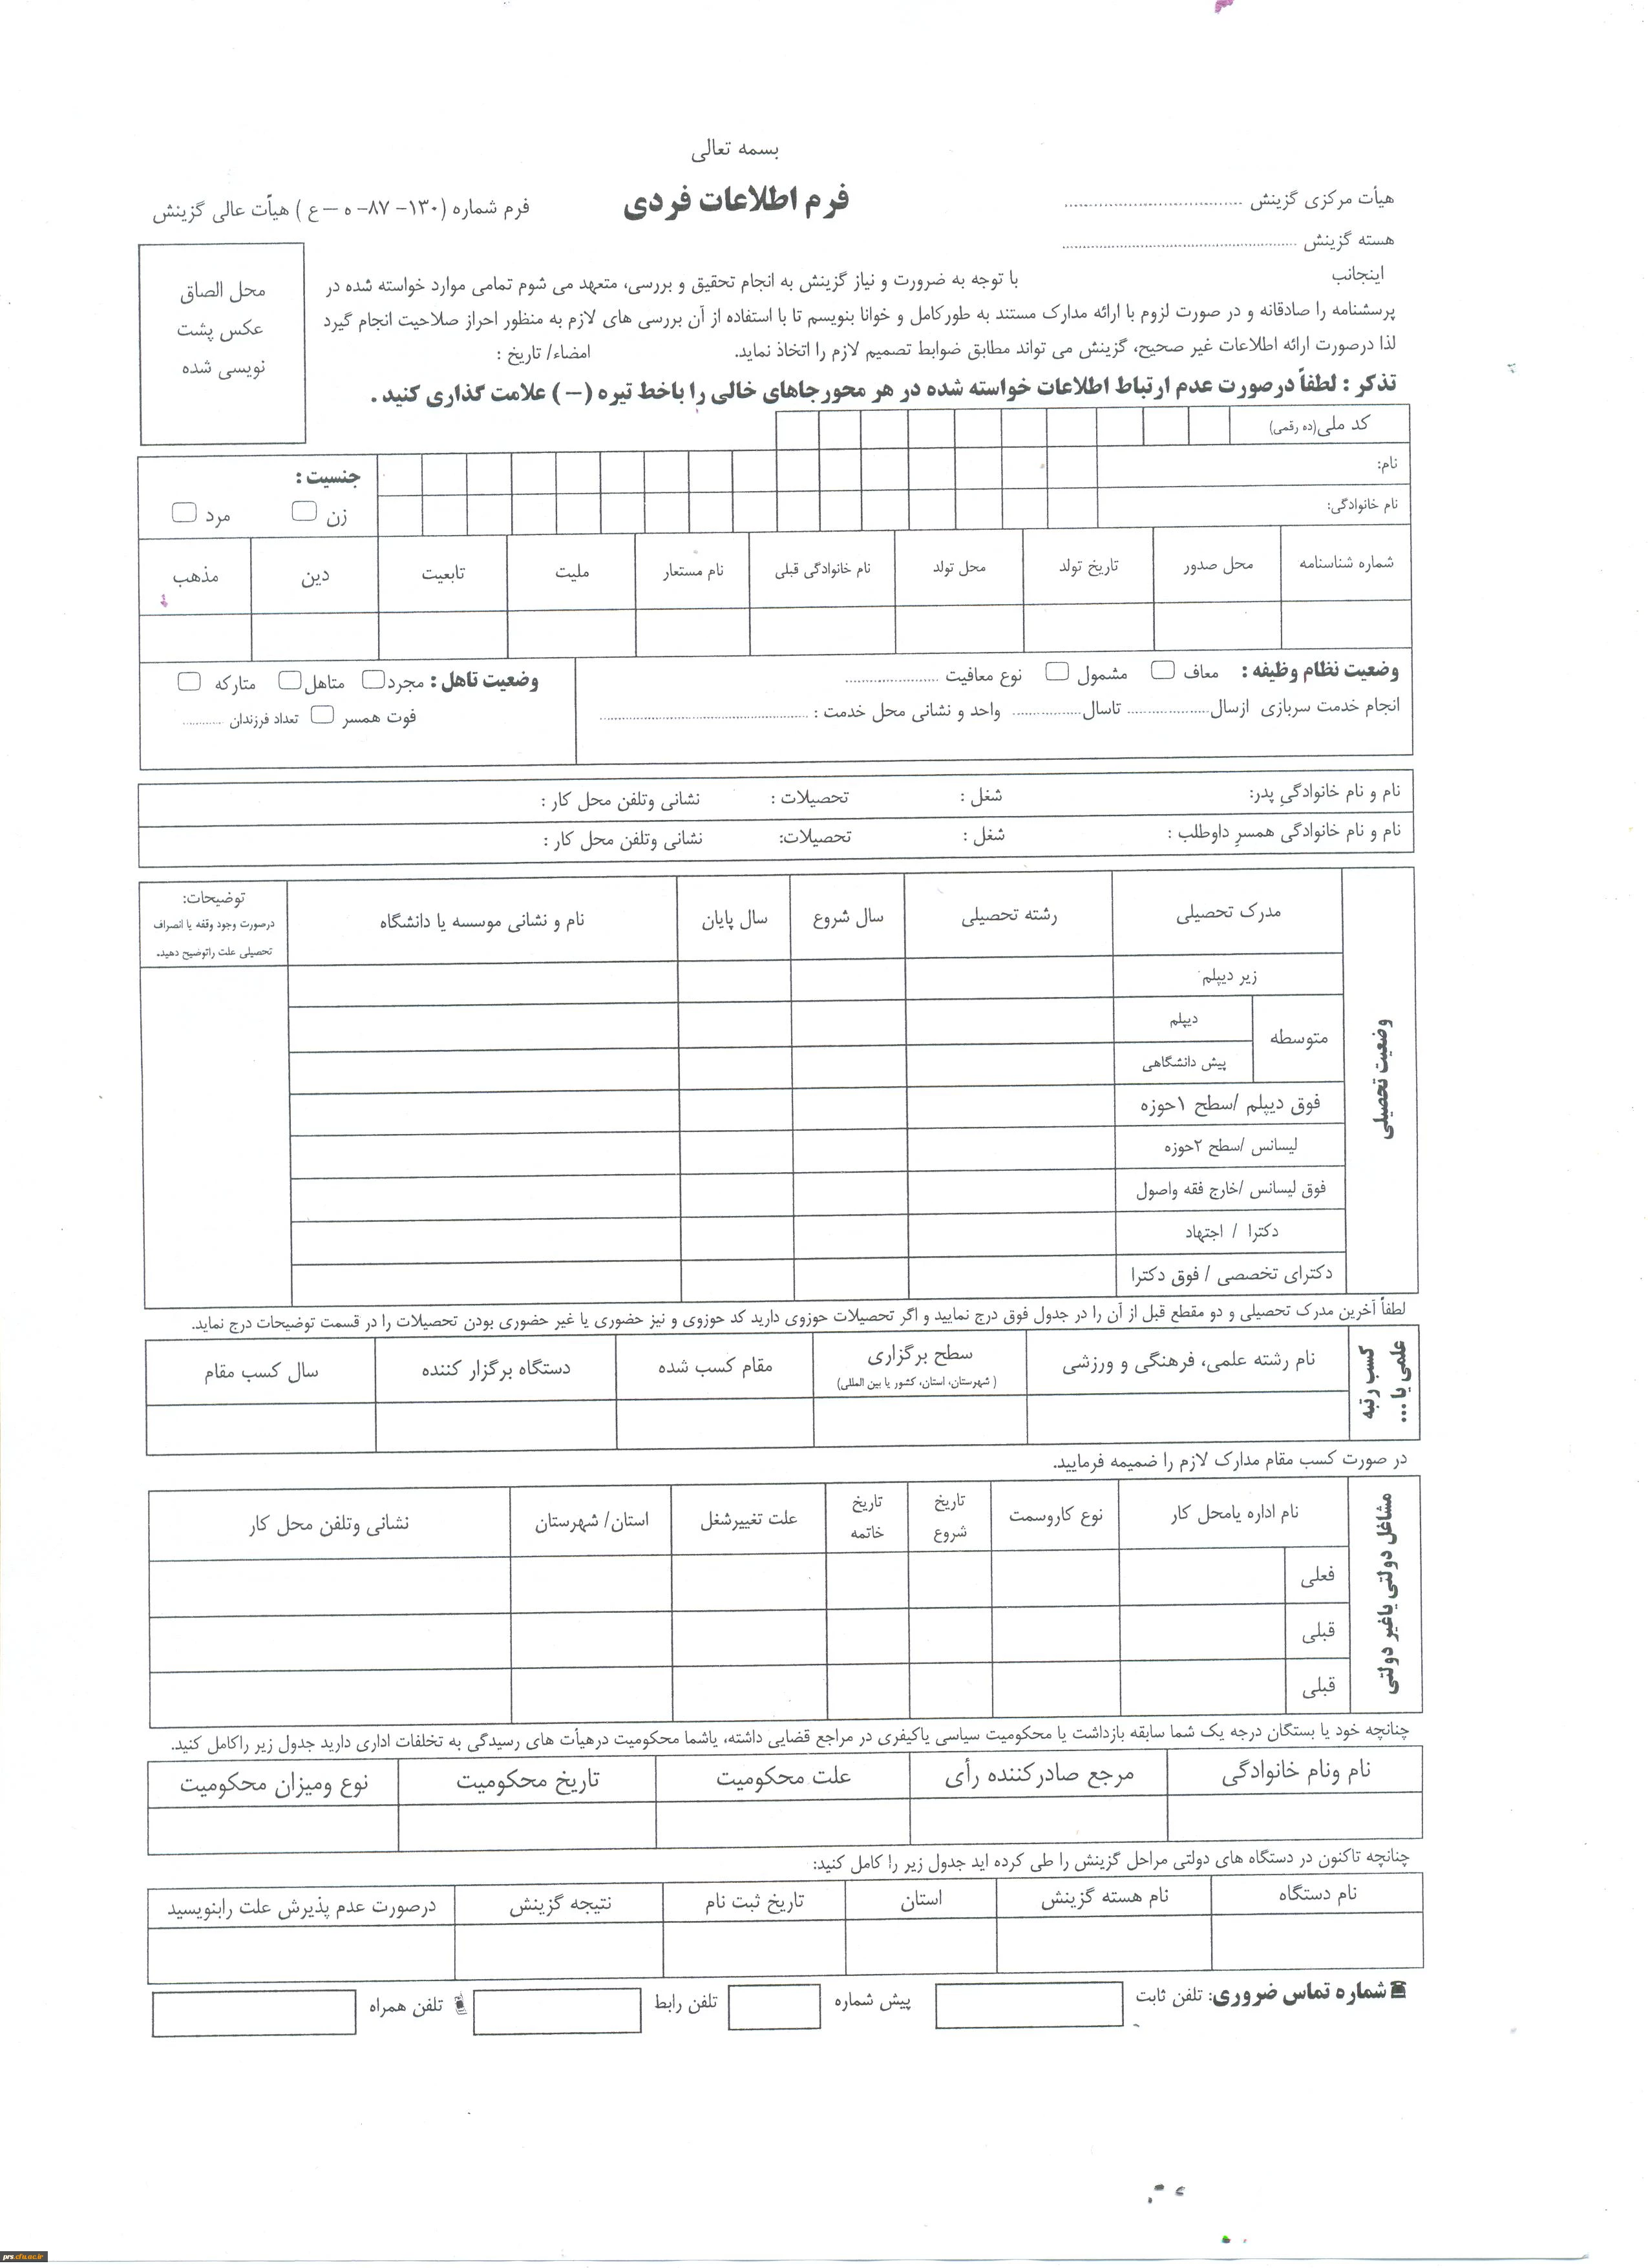 بسمه تعالی
هیأت مرکزی گزینش ................................... فرم اطلاعات فردی فرم شماره (۱۳۰- ۸۷- ه -ع ) هیأت عالی گزینش
هسته گزینش ...............................................
محل الصاق
عکس پشت
نویسی شده
اینجانب با توجه به ضرورت و نیاز گزینش به انجام تحقیق و بررسی، متعهد می شوم تمامی موارد خواسته شده در
پرسشنامه را صادقانه و در صورت لزوم با ارائه مدارک مستند به طورکامل و خوانا بنویسم تا با استفاده از آن بررسی های لازم به منظور احراز صلاحیت انجام گیرد
لذا درصورت ارائه اطلاعات غیر صحیح، گزینش می تواند مطابق ضوابط تصمیم لازم را اتخاذ نماید. امضاء/ تاریخ :
تذکر : لطفاً درصورت عدم ارتباط اطلاعات خواسته شده در هر محورجاهای خالی را باخط تیره (–) علامت گذاری کنید .
کد ملی(ده رقمی)
نام:
نام خانوادگی:
جنسیت :
زن مرد
شماره شناسنامه محل صدور تاریخ تولد محل تولد نام خانوادگی قبلی نام مستعار ملیت تابعیت دین مذهب
وضعیت نظام وظیفه : معاف مشمول نوع معافیت ...................
انجام خدمت سربازی ازسال.................تاسال.............. واحد و نشانی محل خدمت : ..........................................
وضعیت تاهل : مجرد متاهل متارکه
فوت همسر تعداد فرزندان ..........
نام و نام خانوادگیِ پدر: شغل : تحصیلات : نشانی وتلفن محل کار :
نام و نام خانوادگی همسرِ داوطلب : شغل : تحصیلات: نشانی وتلفن محل کار :
وضعیت تحصیلی
مدرک تحصیلی رشته تحصیلی سال شروع سال پایان نام و نشانی موسسه یا دانشگاه
توضیحات:
درصورت وجود وقفه یا انصراف
تحصیلی علت راتوضیح دهید.
زیر دیپلم
متوسطه
دیپلم
پیش دانشگاهی
فوق دیپلم /سطح ۱حوزه
لیسانس /سطح ۲حوزه
فوق لیسانس /خارج فقه واصول
دکترا / اجتهاد
دکترای تخصصی / فوق دکترا
لطفاً آخرین مدرک تحصیلی و دو مقطع قبل از آن را در جدول فوق درج نمایید و اگر تحصیلات حوزوی دارید کد حوزوی و نیز حضوری یا غیر حضوری بودن تحصیلات را در قسمت توضیحات درج نماید.
کسب رتبه
علمی یا ...
نام رشته علمی، فرهنگی و ورزشی سطح برگزاری مقام کسب شده دستگاه برگزار کننده سال کسب مقام
(شهرستان، استان، کشور یا بین المللی)
در صورت کسب مقام مدارک لازم را ضمیمه فرمایید.
مشاغل دولتی یاغیر دولتی
نام اداره یامحل کار نوع کاروسمت تاریخ شروع تاریخ خاتمه علت تغییرشغل استان/ شهرستان نشانی وتلفن محل کار
فعلی
قبلی
قبلی
چنانچه خود یا بستگان درجه یک شما سابقه بازداشت یا محکومیت سیاسی یاکیفری در مراجع قضایی داشته، یاشما محکومیت درهیأت های رسیدگی به تخلفات اداری دارید جدول زیر راکامل کنید.
نام ونام خانوادگی مرجع صادرکننده رأی علت محکومیت تاریخ محکومیت نوع ومیزان محکومیت
چنانچه تاکنون در دستگاه های دولتی مراحل گزینش را طی کرده اید جدول زیر را کامل کنید:
نام دستگاه نام هسته گزینش استان تاریخ ثبت نام نتیجه گزینش درصورت عدم پذیرش علت رابنویسید
شماره تماس ضروری: تلفن ثابت پیش شماره تلفن رابط تلفن همراه
prs.cfu.ac.ir